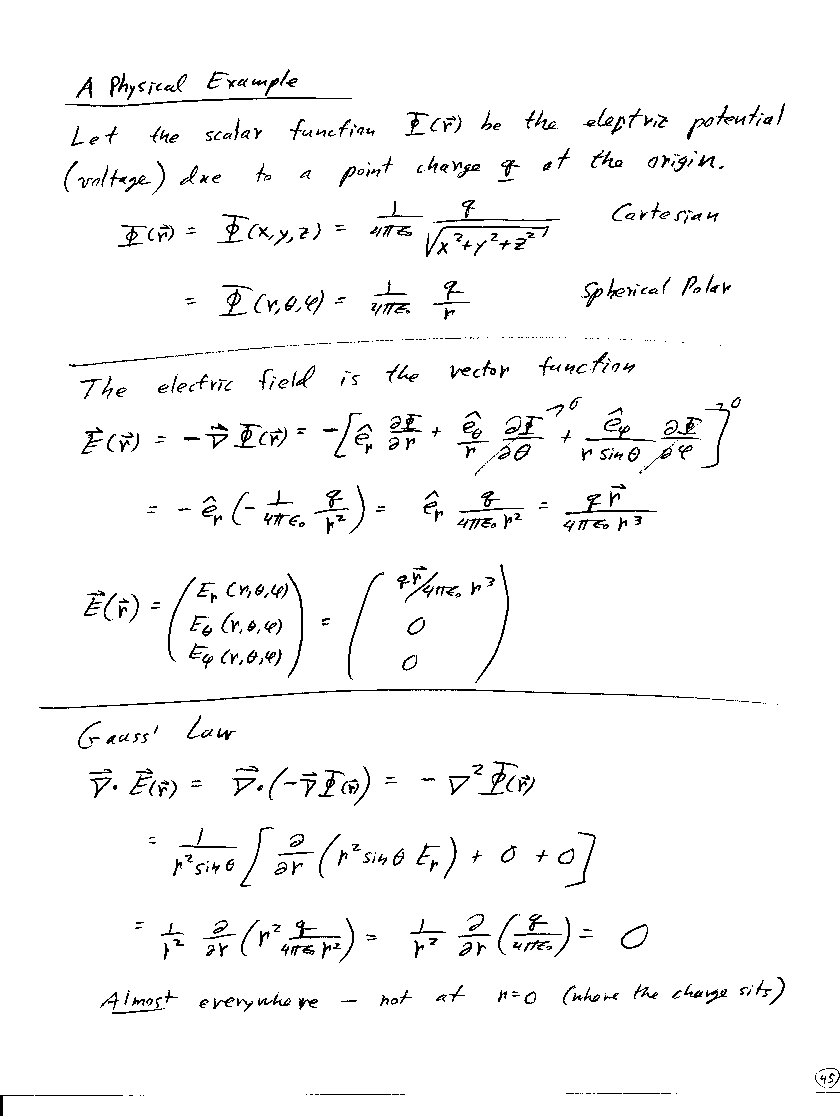 A Physical Example
Let the scalar function Φ(r⃗) be the eleptriz potential
(voltage) due to a point charge q at the origin.
Φ(r⃗) = Φ(x,y,z) = 1/4πε₀ q/√(x²+y²+z²) Cartesian
= Φ(r,θ,φ) = 1/4πε₀ q/r Spherical Polar
The electric field is the vector function
E⃗(r⃗) = -∇⃗Φ(r⃗) = -[ê_r ∂Φ/∂r + ê_θ/r ∂Φ/∂θ →0 + ê_φ/(r sinθ) ∂Φ/∂φ →0]
= -ê_r (-1/4πε₀ q/r²) = ê_r q/4πε₀r² = q r⃗/4πε₀r³
E⃗(r⃗) = (E_r (r,θ,φ) E_θ (r,θ,φ) E_φ (r,θ,φ)) = (q r⃗/4πε₀ r³ 0 0)
Gauss' Law
∇⃗·E⃗(r⃗) = ∇⃗·(-∇⃗Φ(r⃗)) = -∇²Φ(r⃗)
= 1/(r² sinθ) [∂/∂r (r² sinθ E_r) + 0 + 0]
= 1/r² ∂/∂r (r² q/4πε₀r²) = 1/r² ∂/∂r (q/4πε₀) = 0
Almost everywhere – not at r=0 (where the charge sits)
45